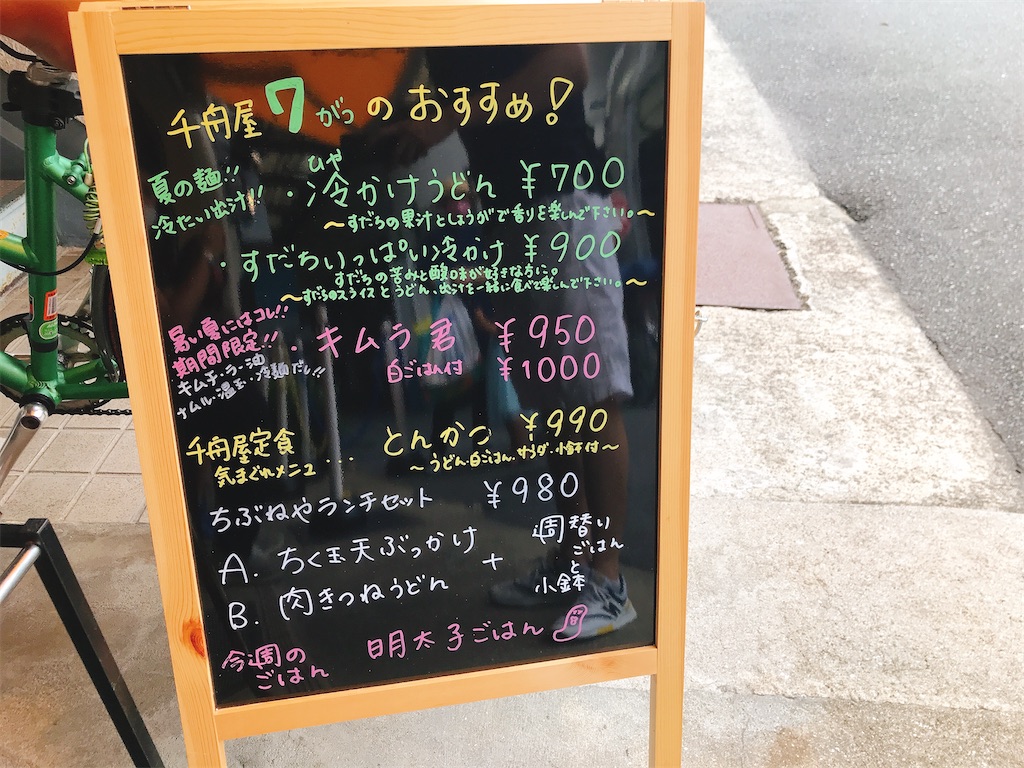 千舟屋 7がつ の おすすめ!
夏の麺!!
冷たい出汁!!
ひや
・冷かけうどん ¥700
〜すだちの果汁としょうがで香りを楽しんで下さい。〜
・すだちいっぱい冷かけ ¥900
すだちの苦みと酸味が好きな方に。
〜すだちのスライスとうどん、出汁を一緒に食べて楽しんで下さい。〜
暑い夏にはコレ!!
期間限定!!
キムチ・ラー油
ナムル・温玉・冷麺だし!!
キムラ君 ¥950
白ごはん付 ¥1000
千舟屋定食
気まぐれメニュー・・・
とんかつ ¥990
〜うどん・白ごはん・サラダ・小鉢付〜
ちぶねやランチセット ¥980
A. ちく玉天ぶっかけ
B. 肉きつねうどん
+
週替り
ごはん
と
小鉢
今週の
ごはん
明太子ごはん